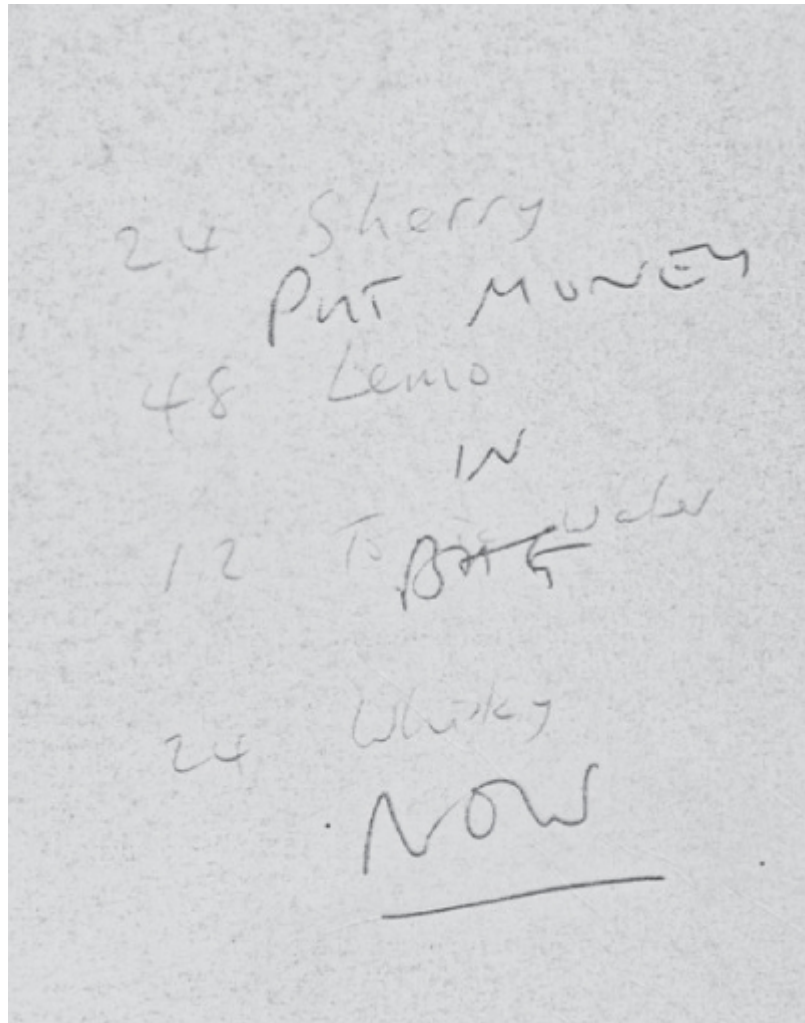 24 Sherry
PUT MONEY
48 Lemo
IN
12 Tonic Water
BAG
24 Whisky
NOW